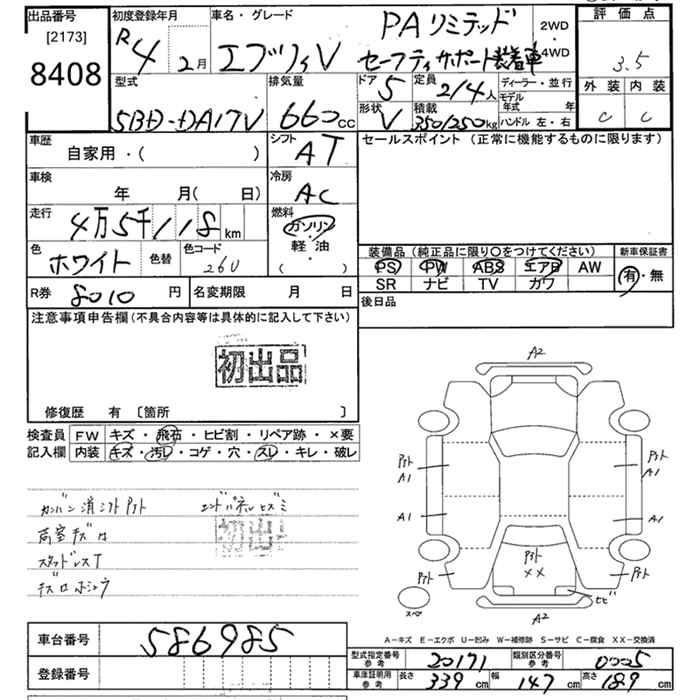 出品番号
[2173]
8408
初度登録年月
R4年 2月
車名・グレード
エブリィV
PAリミテッド
セーフティサポート装着車
2WD
・
4WD
評価点
3.5
外装 内装
C C
型式
5BD-DA17V
排気量
660cc
ドア
5
定員
2/4人
ディーラー・並行
モデル年式 年
形状
V
積載
350/250kg
ハンドル 左・右
車歴
自家用・( )
シフト
AT
セールスポイント(正常に機能するものに限ります)
車検
年 月( 日)
冷房
AC
走行
4万5千118km
燃料
ガソリン
軽・油
( ・ )
色
ホワイト
色替
色コード
26U
装備品(純正品に限り○をつけてください)
新車保証書
PS PW ABS エアB AW
SR ナビ TV カワ
有・無
R券 8010円
名変期限 月 日
後日品
注意事項申告欄(不具合内容等は具体的に記入して下さい)
初出品
修復歴 有 〔箇所 〕
検査員記入欄
FW キズ・飛石・ヒビ割・リペア跡・×要
内装 キズ・汚レ・コゲ・穴・スレ・キレ・破レ
カンバン消シアトPタト
エンドパネルヒズミ
荷室キズロ
初出品
スタッドレスT
キズロホシュウ
A2
Pタト
A1
Pタト
A1
A1
A1
Pタト
Pタト
××
Pタト
ヒビ
スペア
A2
A-キズ E-エクボ U-凹み W-補修跡 S-サビ C-腐食 XX-交換済
車台番号 586985
登録番号
型式指定番号 参考 20171
類別区分番号 参考 0005
車庫証明用 参考 長さ 339cm 幅 147cm 高さ 189cm